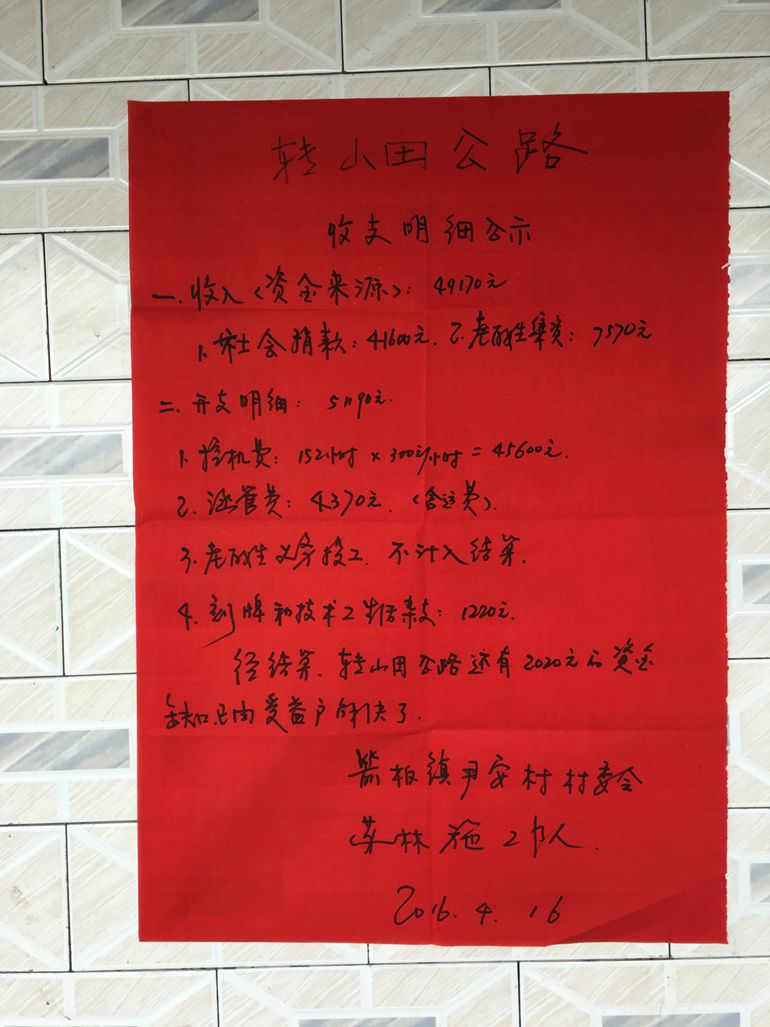 转山田公路
收支明细公示
一.收入(资金来源): 49170元
1.社会捐款: 41600元. 2.老百姓集资: 7570元
二.开支明细: 51190元.
1.挖机费: 152小时×300元/小时=45600元.
2.涵管费: 4370元.(含运费).
3.老百姓义务投工.不计入结算.
4.刻牌和技术工生活杂支: 1220元.
径结算.转山田公路还有2020元的资金
缺口已由受益户解决了.
箭板镇尹安村村委会
施工
2016.4.16